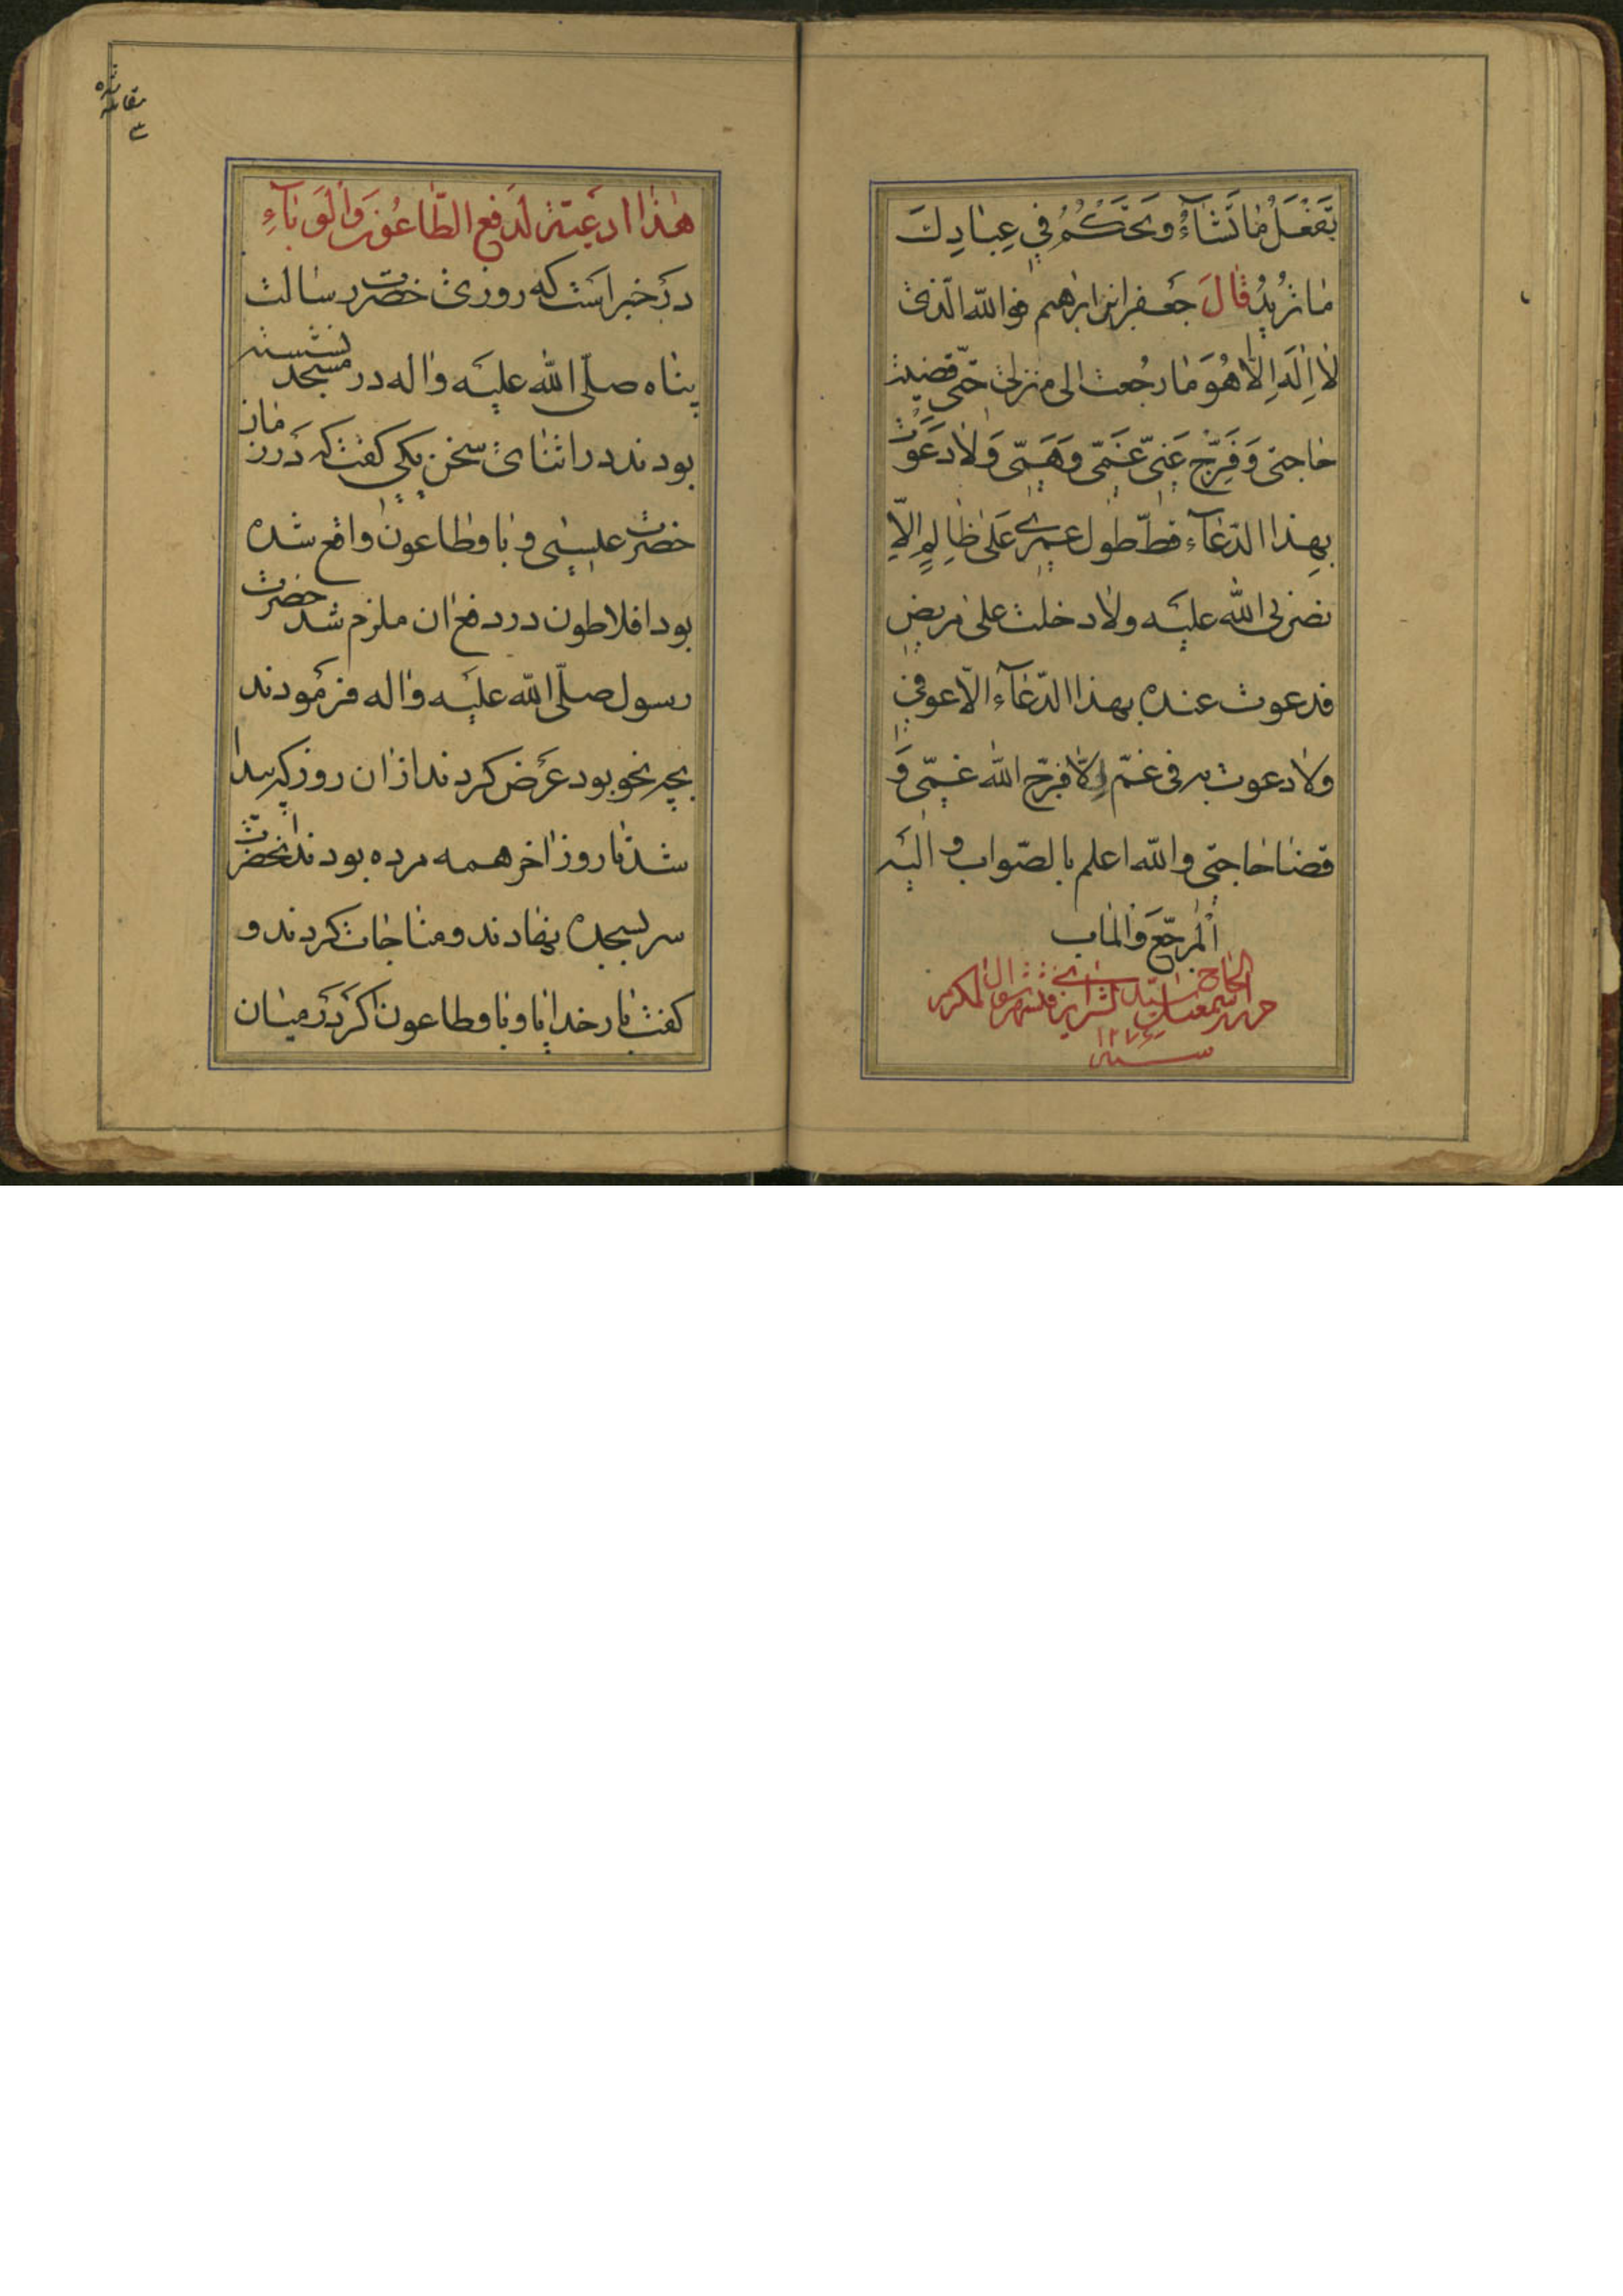 تَفْعَلُ مَا تَشَآءُ وَتَحْكُمُ فِي عِبَادِكَ
مَا تُرِيدُ قَالَ جَعفر ابن ابرهیم فو الله الّذی
لَا اِلَهَ اِلَّا هُوَ مَا رجُعت الی منزلی حتّی قضیت
حاجتی وَفَرّج عَنّی غَمّی وَهَمّی وَلَا دَعَوْتُ
بهذا الدّعآء قطّ طول عمری عَلی ظالِمٍ اِلّا
نصرنی الله علیه ولا دخلت علی مریض
فدعوت عنده بهذا الدّعآء الّا عوفی
ولا دعوت به فی غمّ اِلّا فرّج الله غمّی وَ
قضا حاجتی والله اعلم بالصّواب و الیه
اَلْمرجَع وَالماب
حرره الحاج سید اسمعیل فی شهر شوال المکرم
سنه ۱۲۷۶
هٰذا ادعیته لدَفع الطّاعُون وَالوَبآءِ
در خبر است که روزی حضرت رسالت
پناه صلّی الله علیه واله در مسجد نشسته
بودند در اثنای سخن یکی کفت که در زمان
حضرت علیسی و با وطاعون واقع شده
بود افلاطون در دفع ان ملزم شد حضرت
رسول صلّی الله علیه واله فرمودند
بچه نحو بود عرَض کردند از ان روز که پیدا
شد تا روز اخر همه مرده بودند انحضرت
سر بسجده نهادند و مناجات کردند و
کفت بار خدایا و با وطاعون اکر دَر میان
مقابله شده